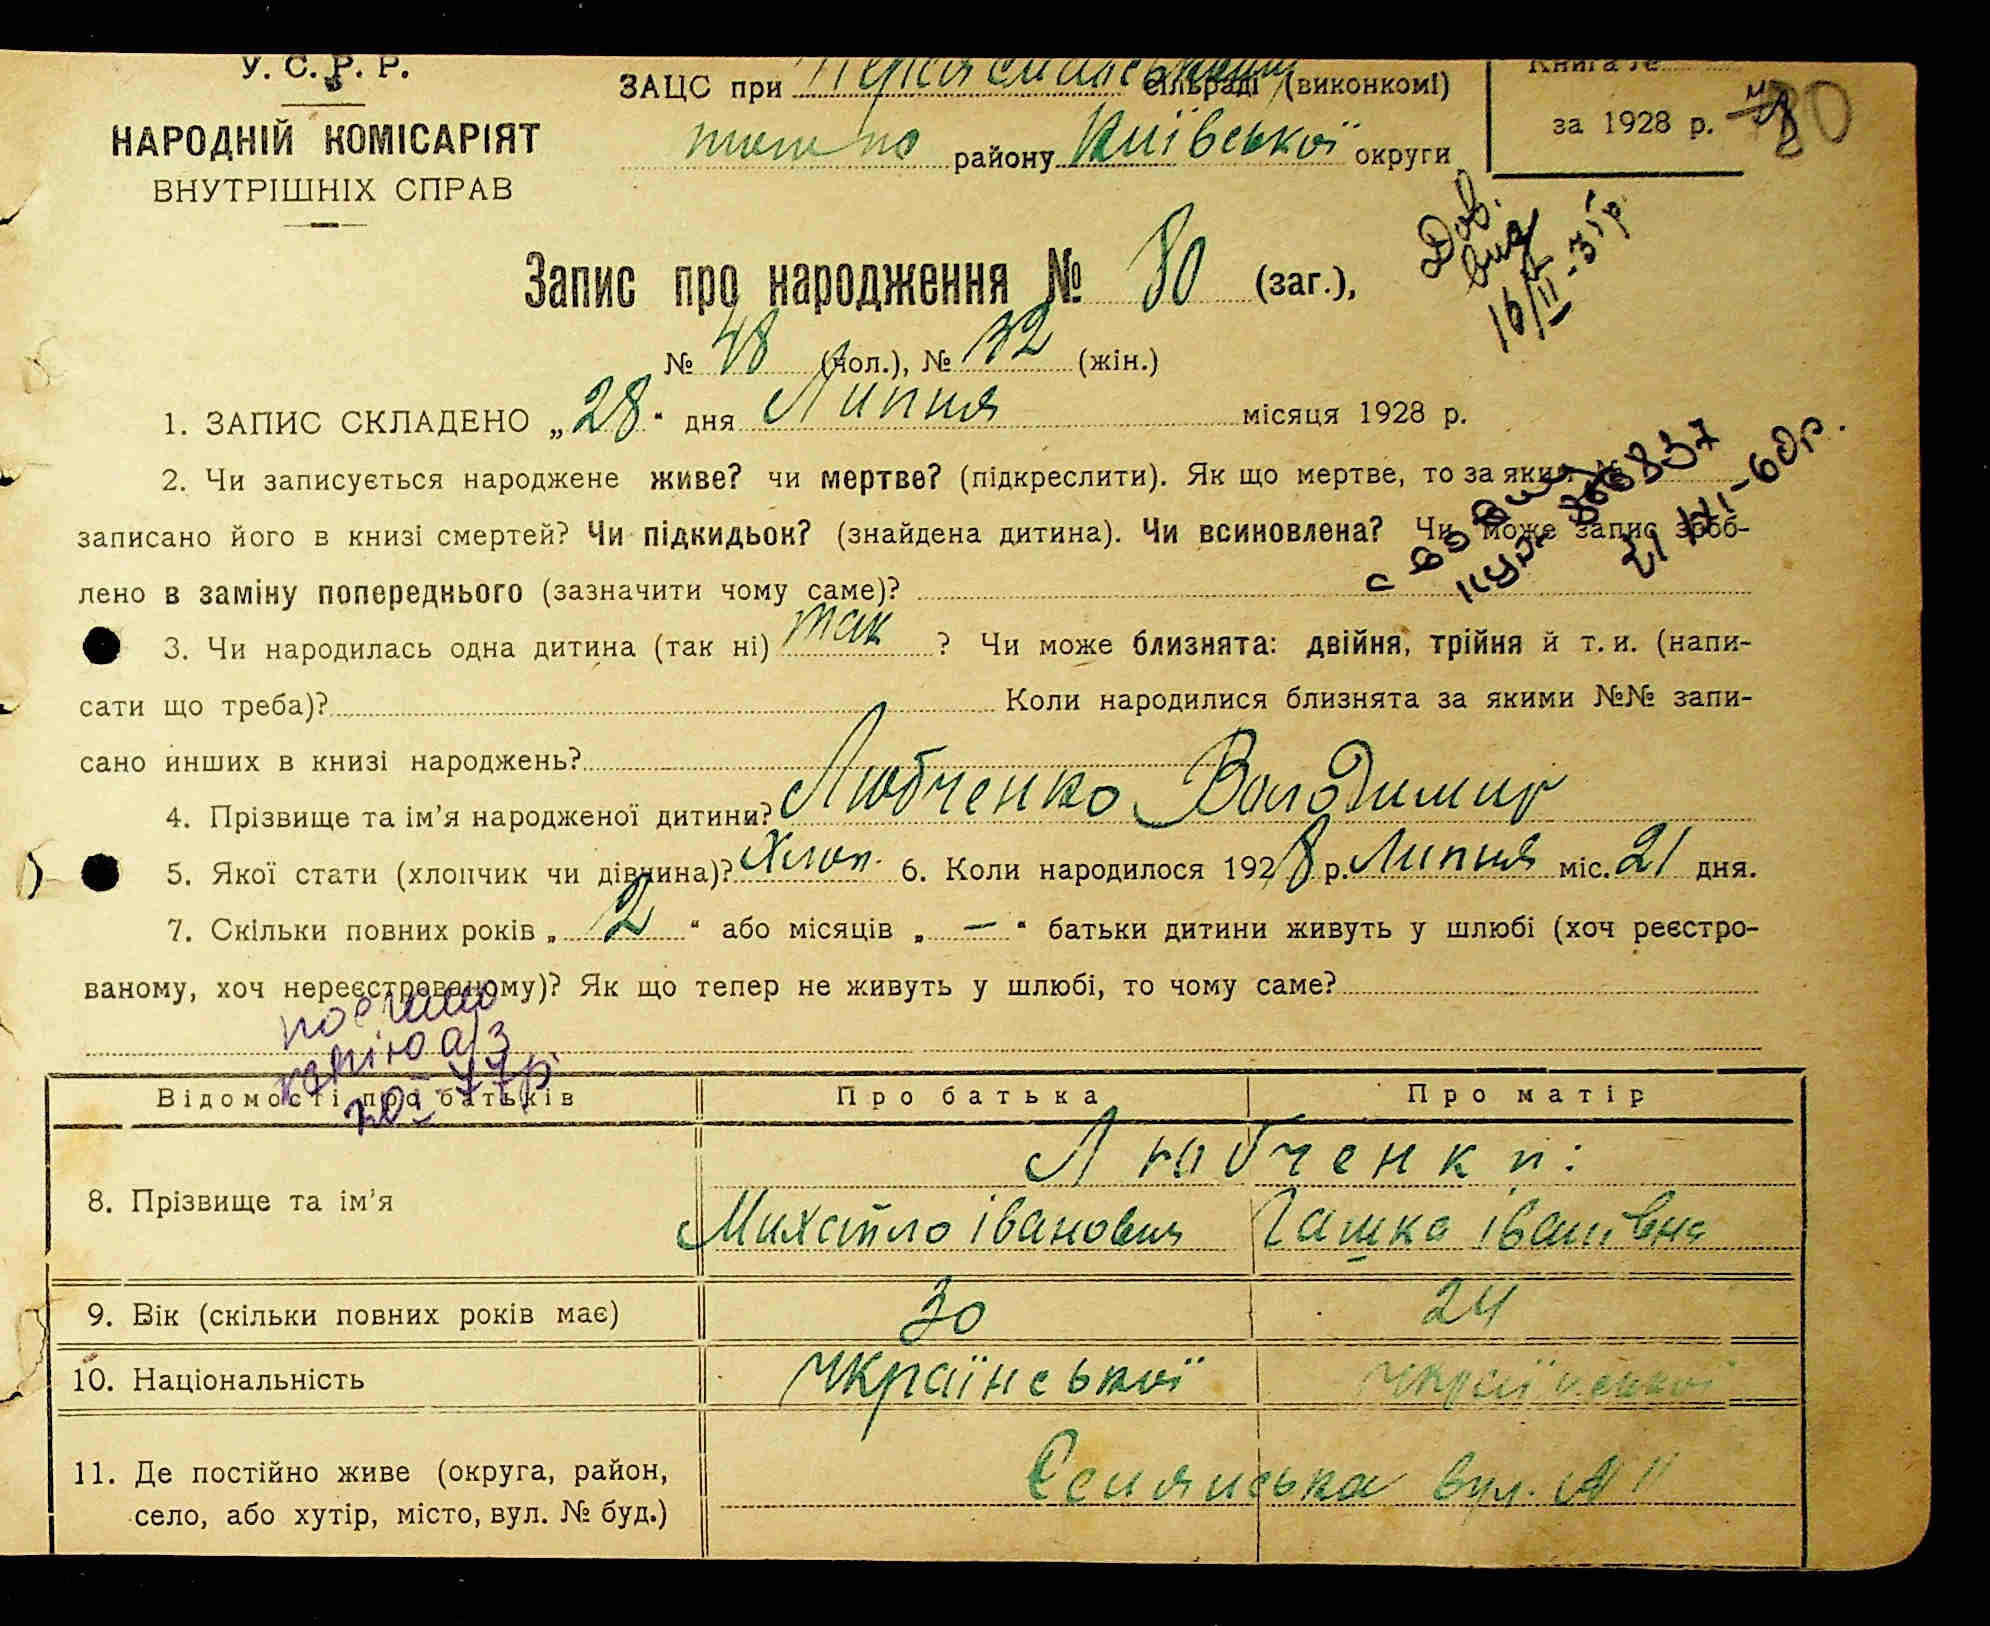 У. С. Р. Р.
НАРОДНІЙ КОМІСАРІЯТ
ВНУТРІШНІХ СПРАВ
ЗАЦС при сільраді (виконкомі)
району Київської округи
Книга №
за 1928 р. 80
Запис про народження № 80 (заг.),
№ 48 (чол.), № 32 (жін.)
Дов.
вид
16/II-35р.
1. ЗАПИС СКЛАДЕНО „28“ дня Липня місяця 1928 р.
2. Чи записується народжене живе? чи мертве? (підкреслити). Як що мертве, то за яким №
записано його в книзі смертей? Чи підкидьок? (знайдена дитина). Чи всиновлена? Чи може запис зроб-
лено в заміну попереднього (зазначити чому саме)?
3. Чи народилась одна дитина (так ні) так ? Чи може близнята: двійня, трійня й т. и. (напи-
сати що треба)? Коли народилися близнята за якими №№ запи-
сано инших в книзі народжень?
4. Прізвище та ім’я народженої дитини? Любченко Володимир
5. Якої стати (хлопчик чи дівчина)? Хлоп. 6. Коли народилося 1928 р. Липня міс. 21 дня.
7. Скільки повних років „ 2 “ або місяців „ — “ батьки дитини живуть у шлюбі (хоч реєстро-
ваному, хоч нереєстрованому)? Як що тепер не живуть у шлюбі, то чому саме?
копію а/з
Відомості про батьків Про батька Про матір
8. Прізвище та ім’я Любченки:
Михайло Іванович Гашка Іванівна
9. Вік (скільки повних років має) 30 24
10. Національність Української Української
11. Де постійно живе (округа, район,
село, або хутір, місто, вул. № буд.) вул. № 11